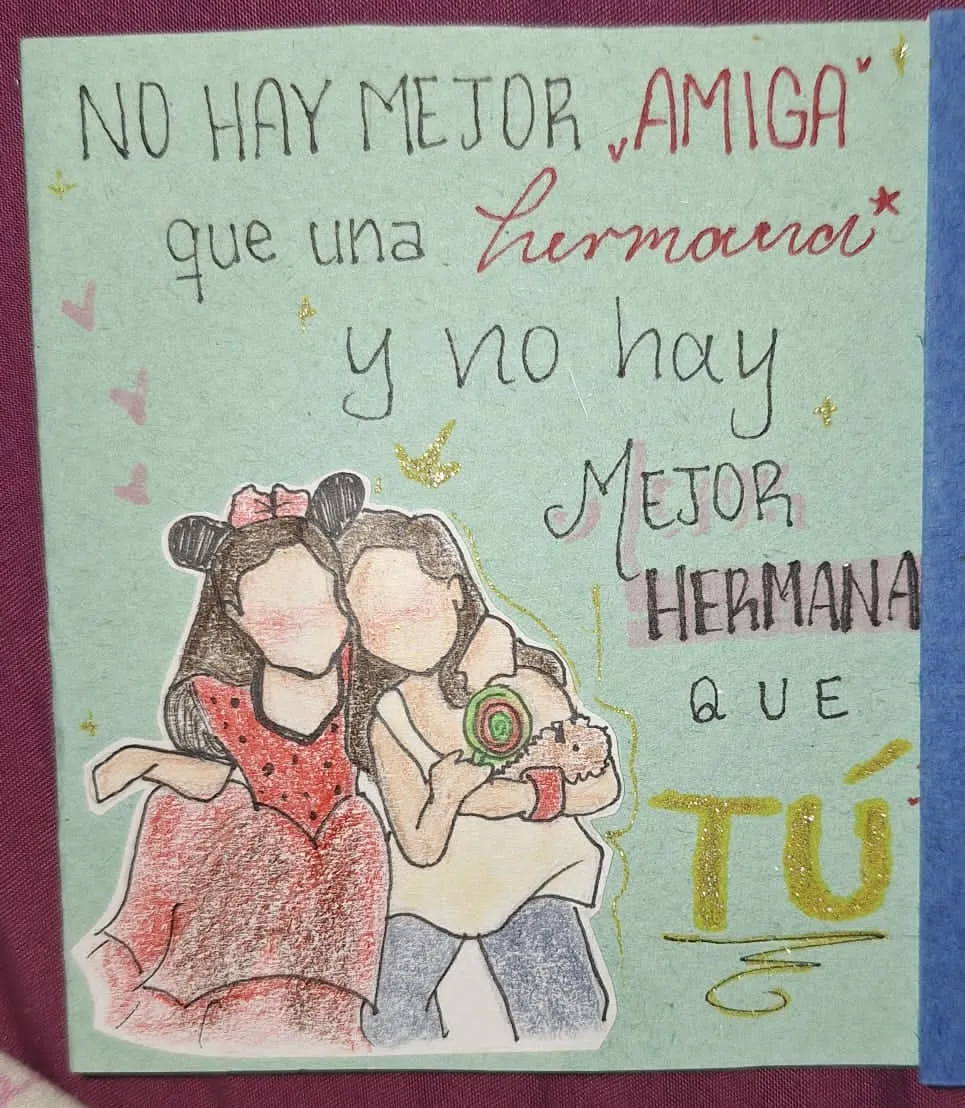 NO HAY MEJOR "AMIGA"
que una hermana*
y no hay
MEJOR
HERMANA
QUE
TÚ